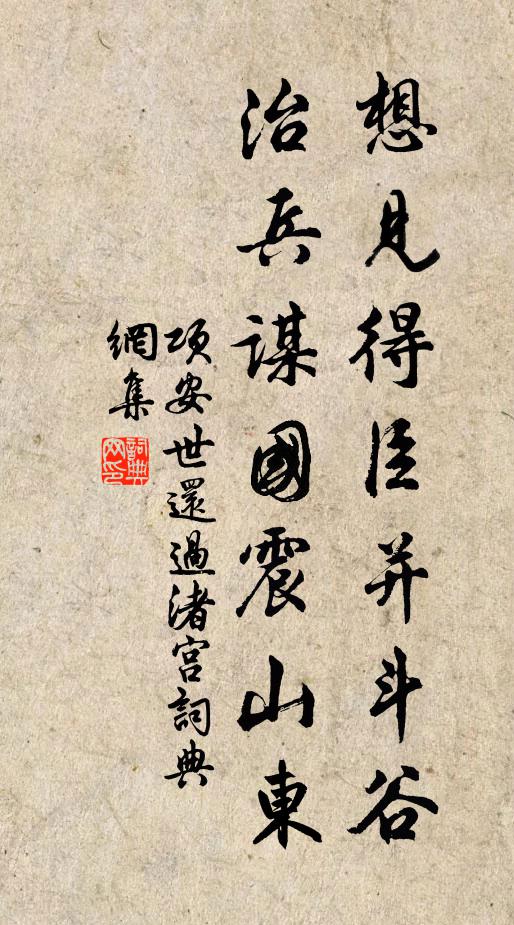 想見得臣并斗谷
治兵謀國震山東
項安世還過渚宮詞典
網集
詞典
网印